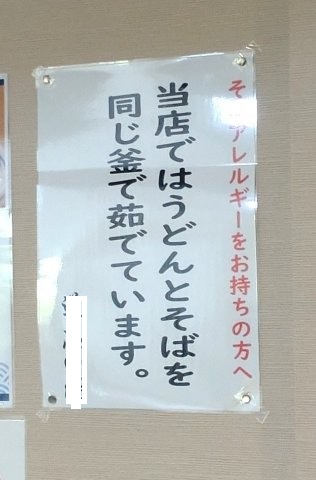 そばアレルギーをお持ちの方へ
当店ではうどんとそばを
同じ釜で茹でています。